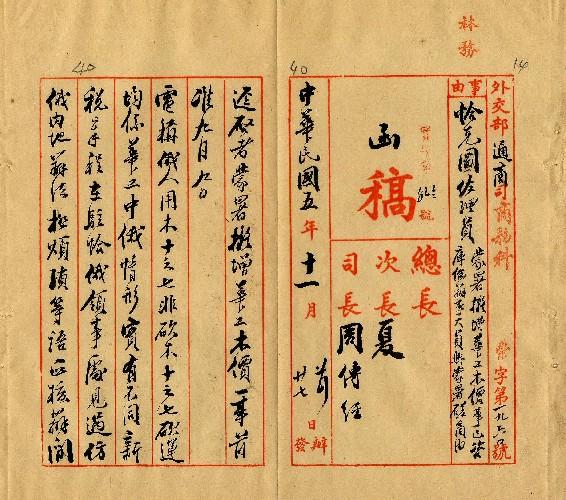 林務
外交部通商司商務科
事由
恰克圖佐理員
蒙署擬增華工木價事已咨
庫倫辦事大員與蒙署磋商由
字第一九六號
函稿
號
總長
次長夏
司長周傳經
中華民國五年十一月
廿七
日
辦
發
逕啟者蒙署擬增華工木價一事前
准九月
電稱俄人用木十之七非砍木十之七砍運
均係華工中俄情形實有不同新
稅章程在駐恰俄領事處見過仿
俄內地辦法極煩瑣等語正核辦間
40
40
14